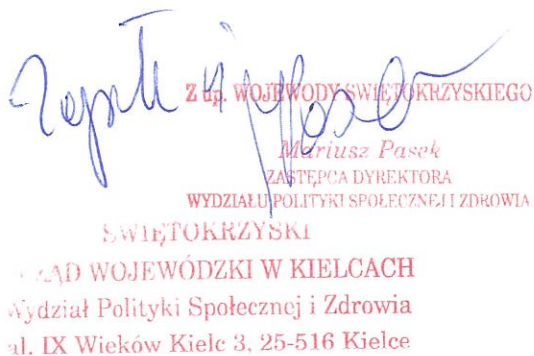 Z up. WOJEWODY ŚWIĘTOKRZYSKIEGO
Mariusz Pasek
ZASTĘPCA DYREKTORA
WYDZIAŁU POLITYKI SPOŁECZNEJ I ZDROWIA
ŚWIĘTOKRZYSKI
WOJEWÓDZKI W KIELCACH
Wydział Polityki Społecznej i Zdrowia
al. IX Wieków Kielc 3, 25-516 Kielce